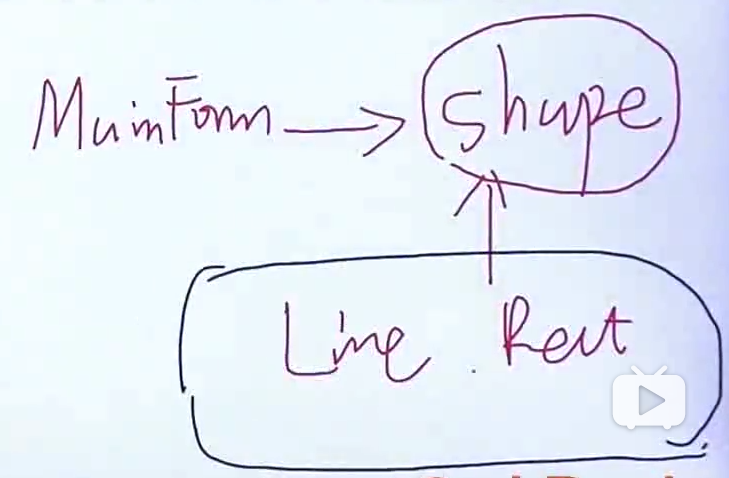 MainForm → Shape
Line. Rect